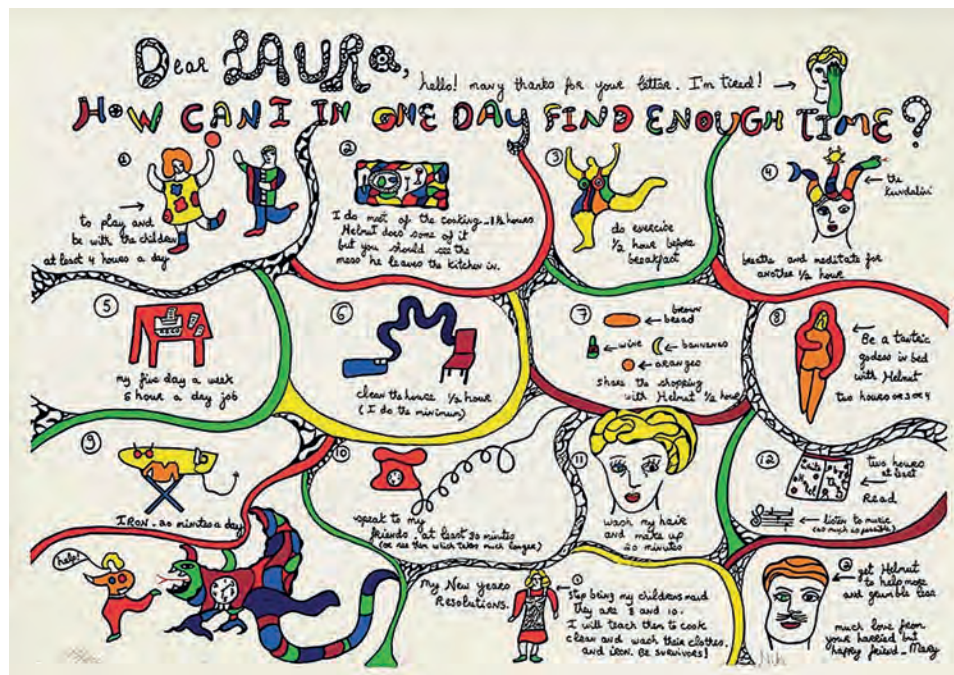 Dear LAURA,
hello! many thanks for your letter. I'm tired!
HOW CAN I IN ONE DAY FIND ENOUGH TIME?
1
to play and
be with the children
at least 4 hours a day
2
I do most of the cooking _ 1½ hours
Helmut does some of it
but you should see the
mess he leaves the kitchen in.
3
do exercise
½ hour before
breakfast
4
the
kundalini
breathe and meditate for
another ½ hour
5
my five day a week
5 hour a day job
6
clean the house ½ hour
(I do the minimum)
7
brown
bread
wine
bannanas
oranges
share the shopping
with Helmut ½ hour
8
Be a tantric
godess in bed
with Helmut
two hours or 3 or 4
9
IRON - 20 minutes a day
10
speak to my
friends - at least 30 minutes
(or see them which takes much longer)
11
wash my hair
and make up
20 minutes
12
two hours
at least
Read
listen to music
(as much as possible)
help!
My New Years
Resolutions.
1
stop being my childrens maid
They are 8 and 10.
I will teach them to cook
clean and wash their clothes.
and iron. BE SURVIVORS!
2
get Helmut
to help more
and grumble less
much love from
your harried but
happy friend _ Mary